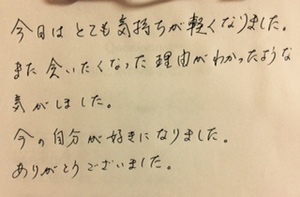 今日は とても 気持ちが 軽くなりました。
また 会いたくなった 理由が わかったような
気が しました。
今の 自分が 好きに なりました。
ありがとうございました。